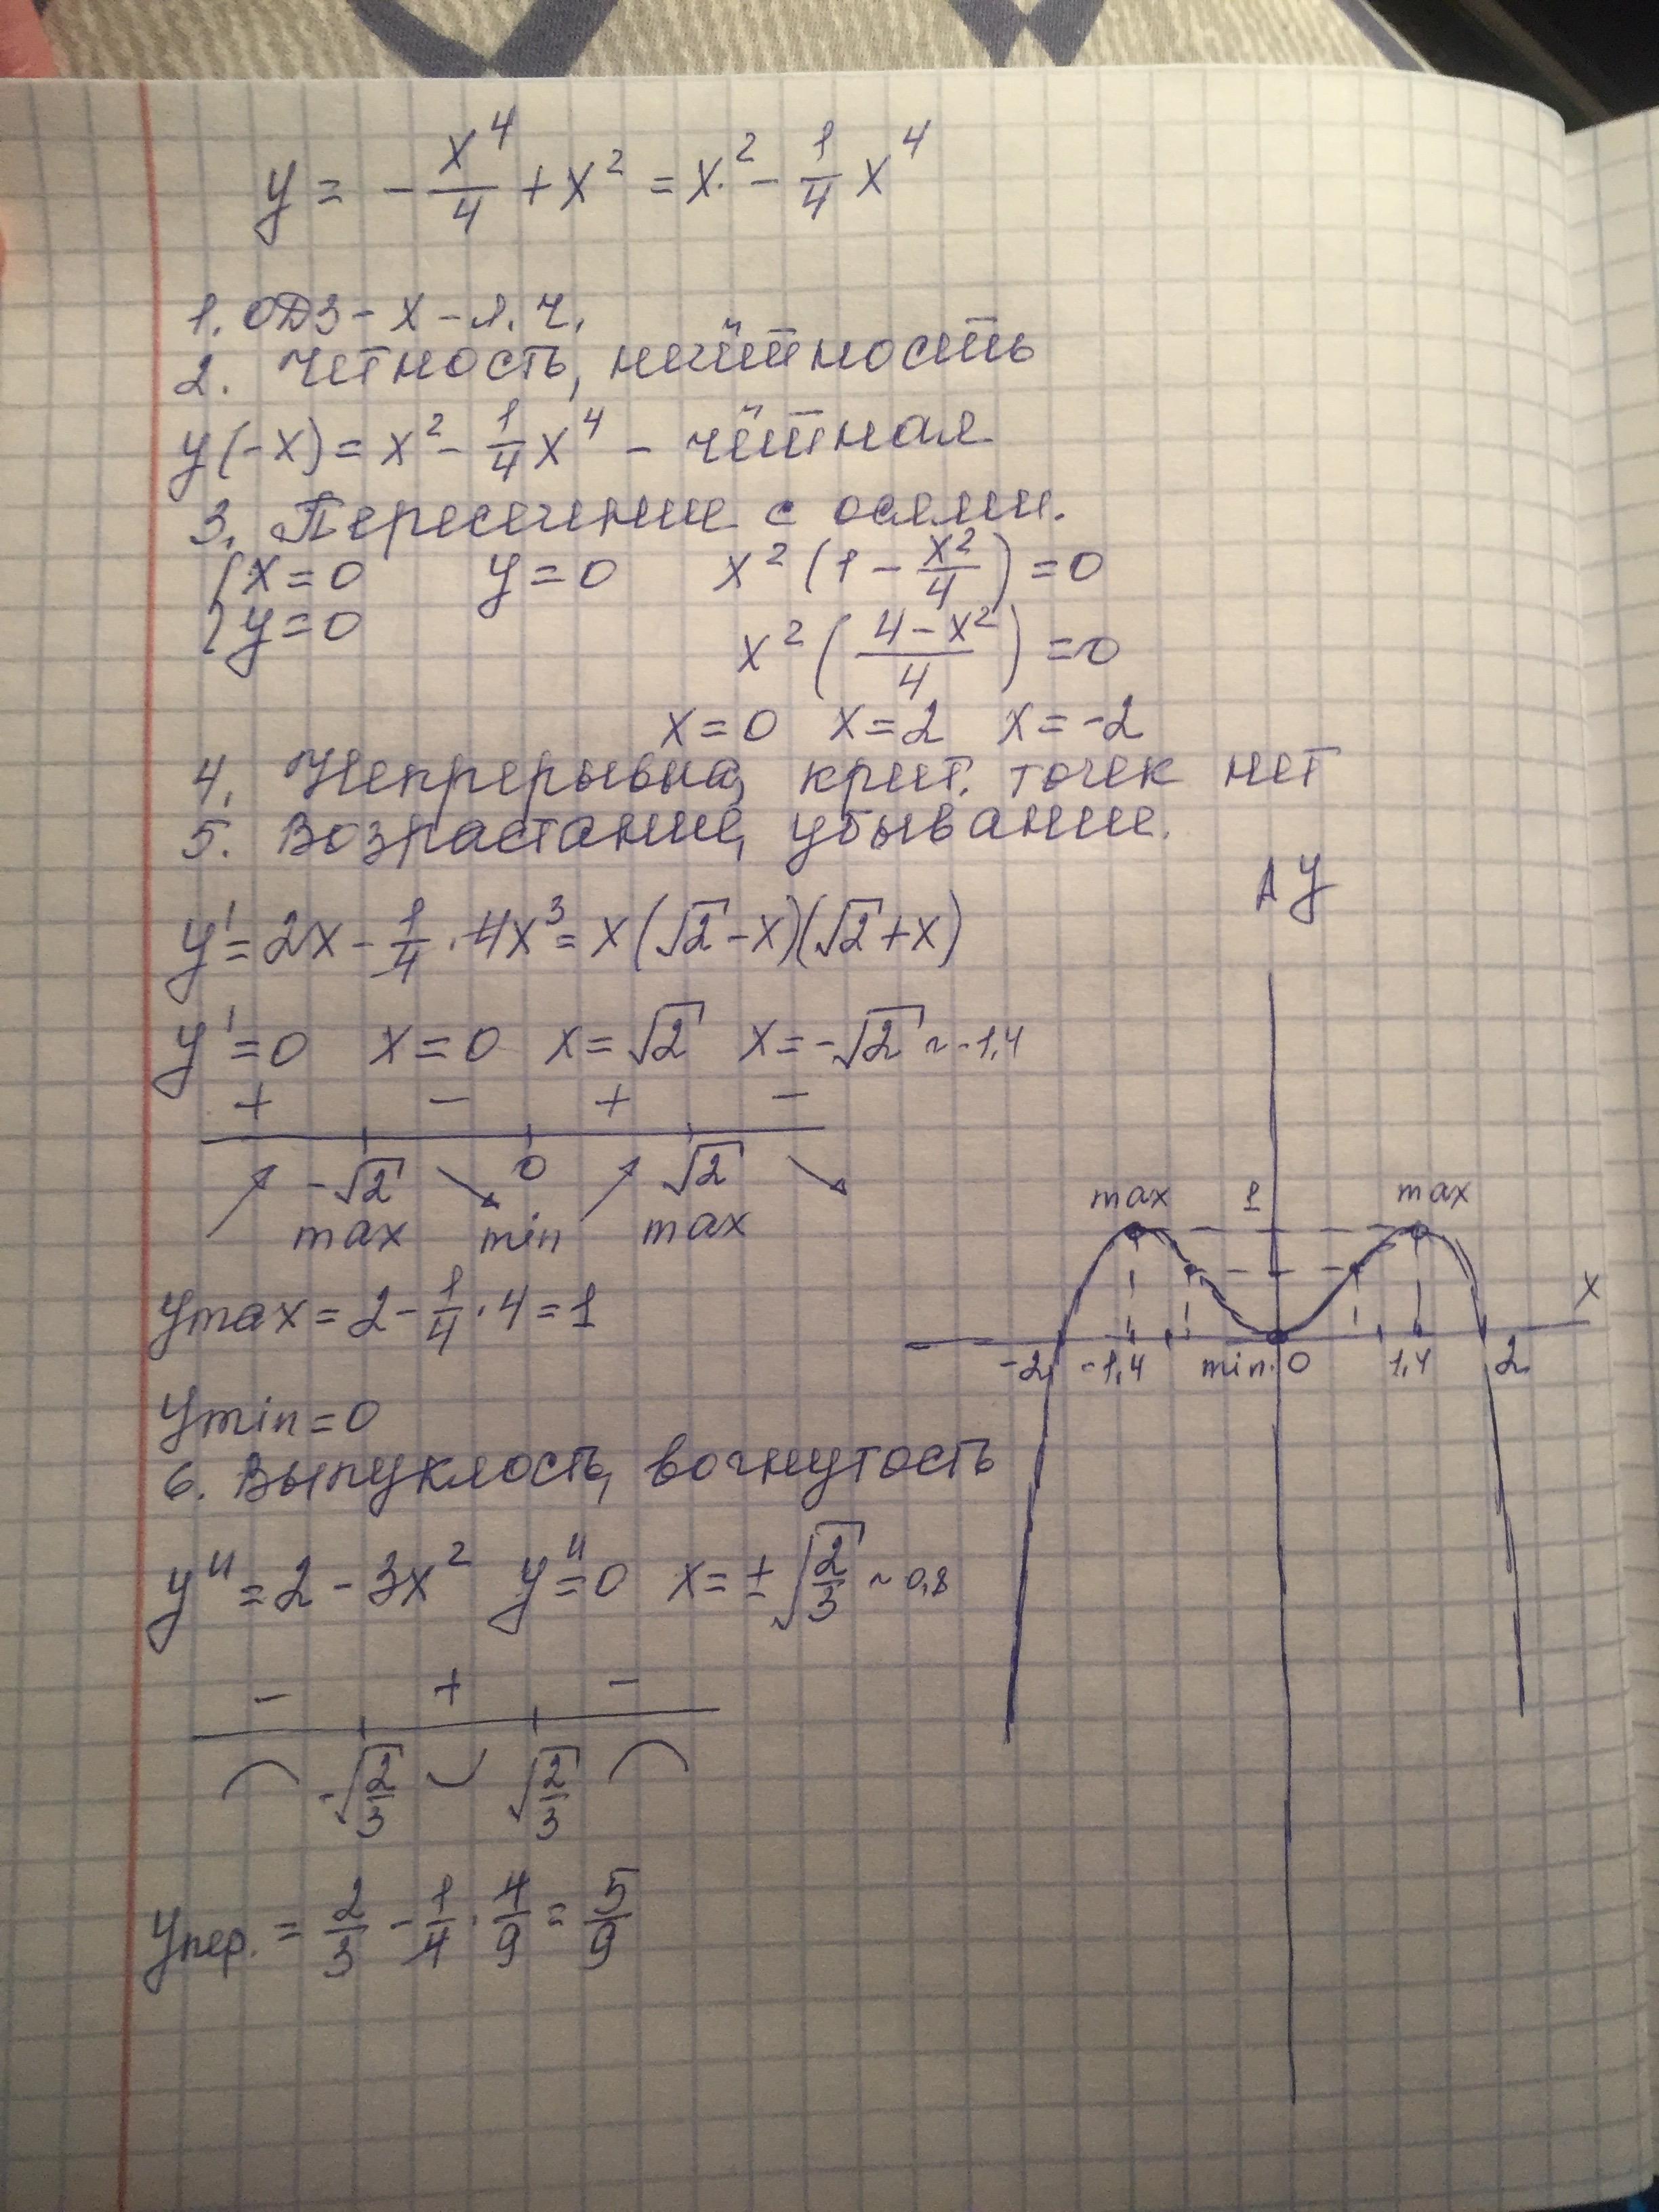 y = -x⁴/4 + x² = x² - 1/4 x⁴
1. ОДЗ - x - л. ч.
2. Чётность, нечётность
y(-x) = x² - 1/4 x⁴ - чётная
3. Пересечение с осями.
{x = 0 y = 0 x²(1 - x²/4) = 0
{y = 0 x²((4 - x²)/4) = 0
x = 0 x = 2 x = -2
4. Непрерывна, крит. точек нет
5. Возрастание, убывание.
y' = 2x - 1/4 · 4x³ = x(√2 - x)(√2 + x)
y' = 0 x = 0 x = √2 x = -√2 ~ -1,4
+ - + -
-√2 0 √2
max min max
y max = 2 - 1/4 · 4 = 1
y min = 0
6. Выпуклость, вогнутость
y'' = 2 - 3x² y'' = 0 x = ±√(2/3) ~ 0,8
- + -
-√(2/3) √(2/3)
y пер. = 2/3 - 1/4 · 4/9 = 5/9
y
max 1 max
x
-2 -1,4 min 0 1,4 2